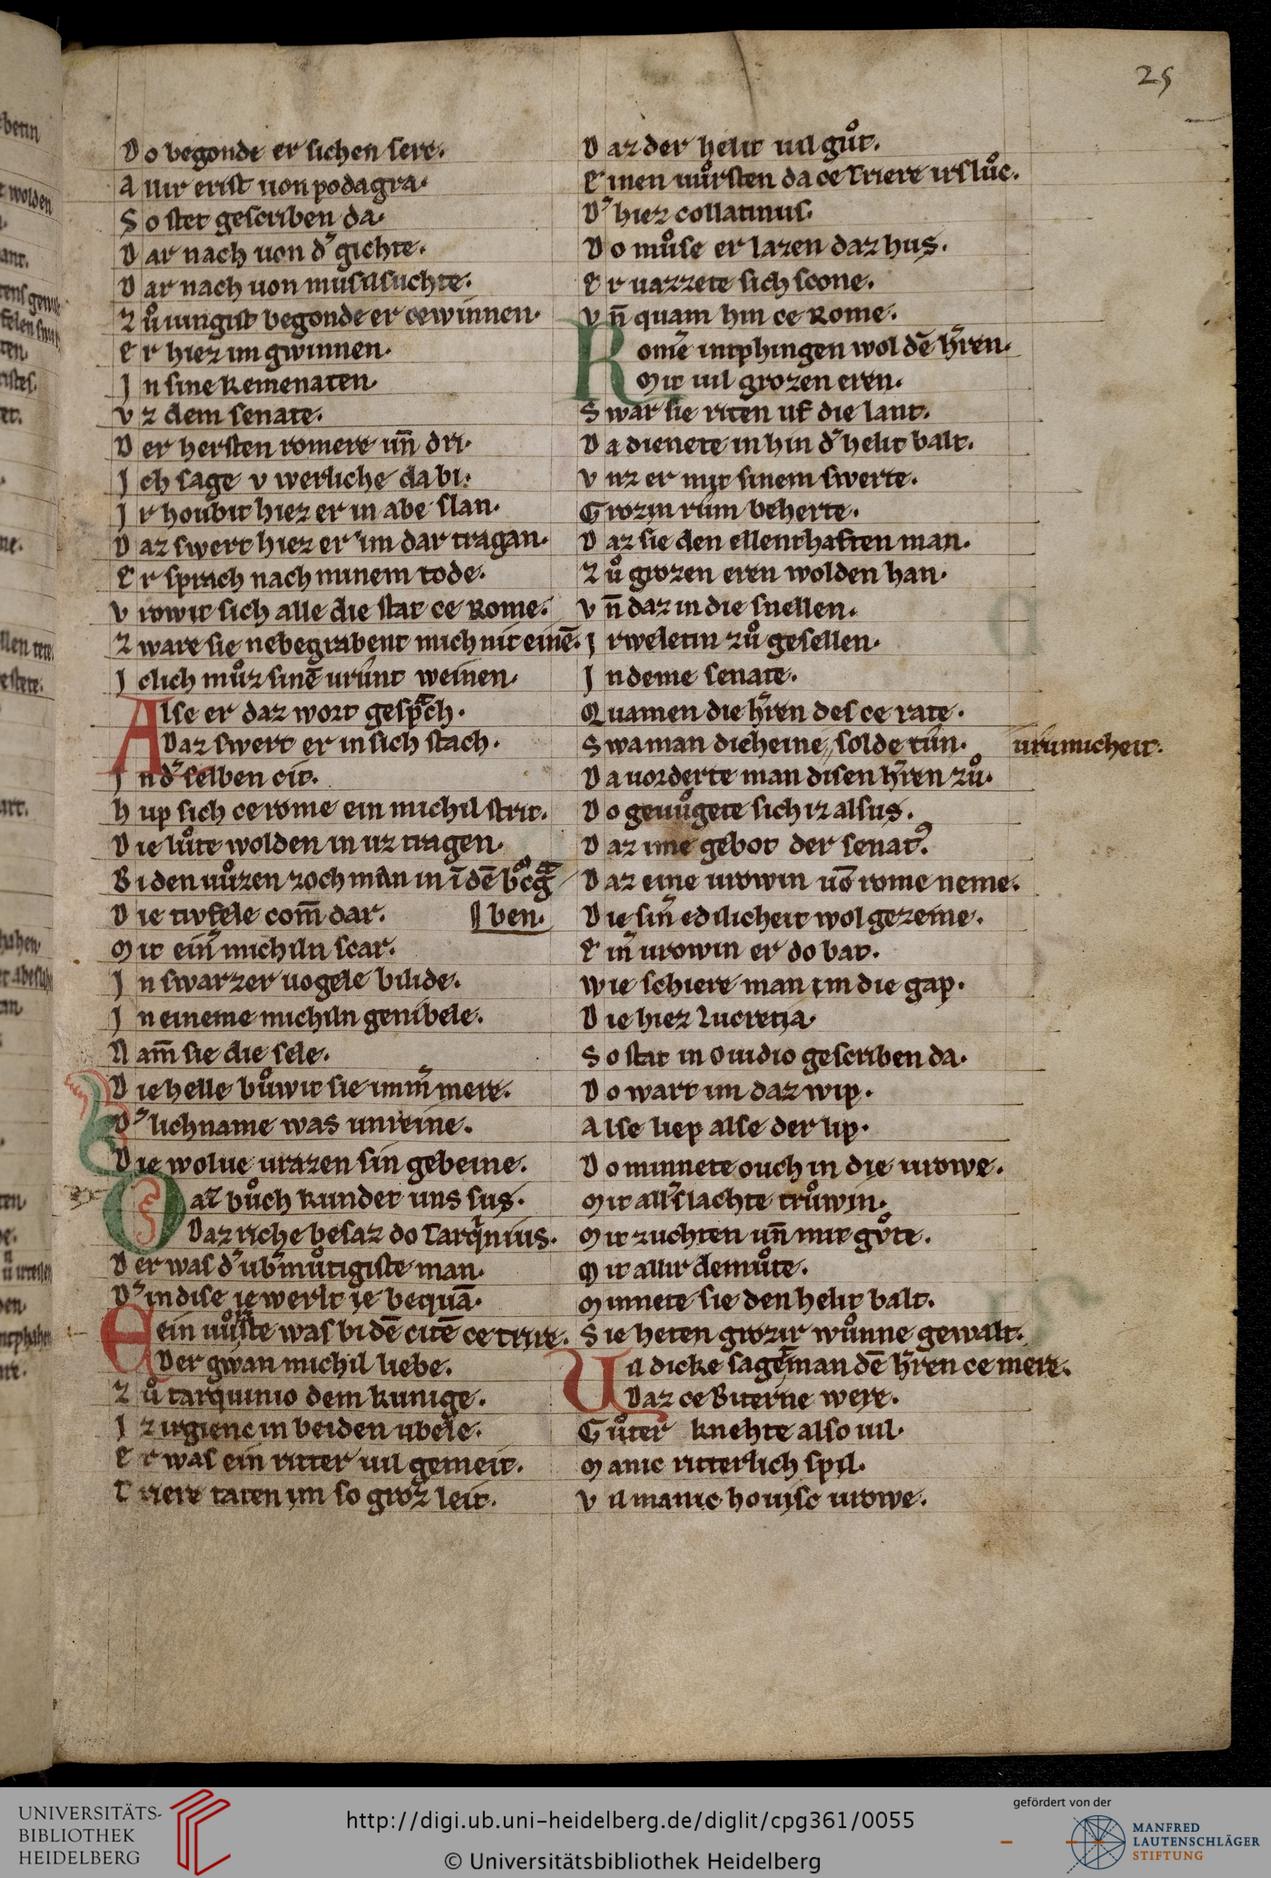 25
Do begonde er sichen sere.
Allir erist uon podagra.
So stet gescriben da.
Dar nach uon d͛ gichte.
Dar nach uon musilsuchte.
Zuͦ iungist begonde er cewinnen.
Er hiez im gwinnen.
In sine kemenaten.
vz dem senate.
Der hersten romere un̄ dri.
Ich sage v werliche da bi.
Ir houbit hiez er in abe slan.
Daz swert hiez er im dar tragan.
Er sprach nach minem tode.
vrowit sich alle die stat ce Rome.
Zware sie nebegrabent mich nit einē.
Iclich muͦz sinē urunt weinen.
Alse er daz wort gesprach.
Daz swert er in sich stach.
In d͛ selben cit.
hup sich ce rome ein michil strit.
Die luͦte wolden in uz tragen.
Bi den uuͦzen zoch man in ī dē bͦcgͣ
ben.
Die tivfele com̄ dar.
Mit ein͛ michiln scar.
In swarzer uogele bilide.
In eineme michiln genibele.
Nam̄ sie die sele.
Die helle buͦwit sie imm͛ mere.
D͛ lichname was unreine.
Die wolue urazen sin gebeine.
Daz buͦch kundet uns sus.
Daz riche besaz do Tarqͥnius.
Der was d͛ ub͛muͦtigiste man.
D͛ in dise iewerlt ie bequā.
Ein uuͦrste was bi dē citē ce trire.
Der gwan michil liebe.
Zuͦ tarquinio dem kunige.
Iz irgienc in beiden ubele.
Er was ein ritter uil gemeit.
Triere taten im so groz leit.
Daz der helit uil guͦt.
Einen uuͦrsten da ce Triere irsluͦc.
D͛ hiez collatinus.
Do muͦse er lazen daz hus.
Er uazzete sich scone.
vn̄ quam hin ce Rome.
Rom͛e intphingen wol dē h͛ren.
Mit uil grozen eren.
Swar sie riten uf die lant.
Da dienete in hin d͛ helit balt.
vnz er mit sinem swerte.
Grozin rům beherte.
Daz sie den ellenthaften man.
Zuͦ grozen eren wolden han.
vn̄ daz in die snellen.
Irweletin zuͦ gesellen.
In deme senate.
Quamen die h͛ren des ce rate.
Swa man dicheine solde tůn.
urumicheit.
Da uorderte man disen h͛ren zuͦ.
Do geuuͦgete sich iz alsus.
Daz ime gebot der senat᾿.
Daz eine urowin uō rome neme.
Die sin͛ edilicheit wol gezeme.
Ein͛ urowin er do bat.
wie schiere man im die gap.
Die hiez Lucretia.
So stat in Ouidio gescriben da.
Do wart im daz wip.
Alse liep alse der lip.
Do minnete ouch in die urowe.
Mit all͛slachte truͦwin.
Mit zuchten un̄ mit guͦte.
Mit allir demuͦte.
Minnete sie den helit balt.
Sie heten grozir wuͦnne gewalt.
Uil dicke sagete man dē h͛ren ce mere.
Daz ce Biterne were.
Guͦter knehte also uil.
Manic ritterlich spil.
vil manic houisc urowe.
UNIVERSITÄTS-
BIBLIOTHEK
HEIDELBERG
http://digi.ub.uni-heidelberg.de/diglit/cpg361/0055
© Universitätsbibliothek Heidelberg
gefördert von der
MANFRED
LAUTENSCHLÄGER
STIFTUNG